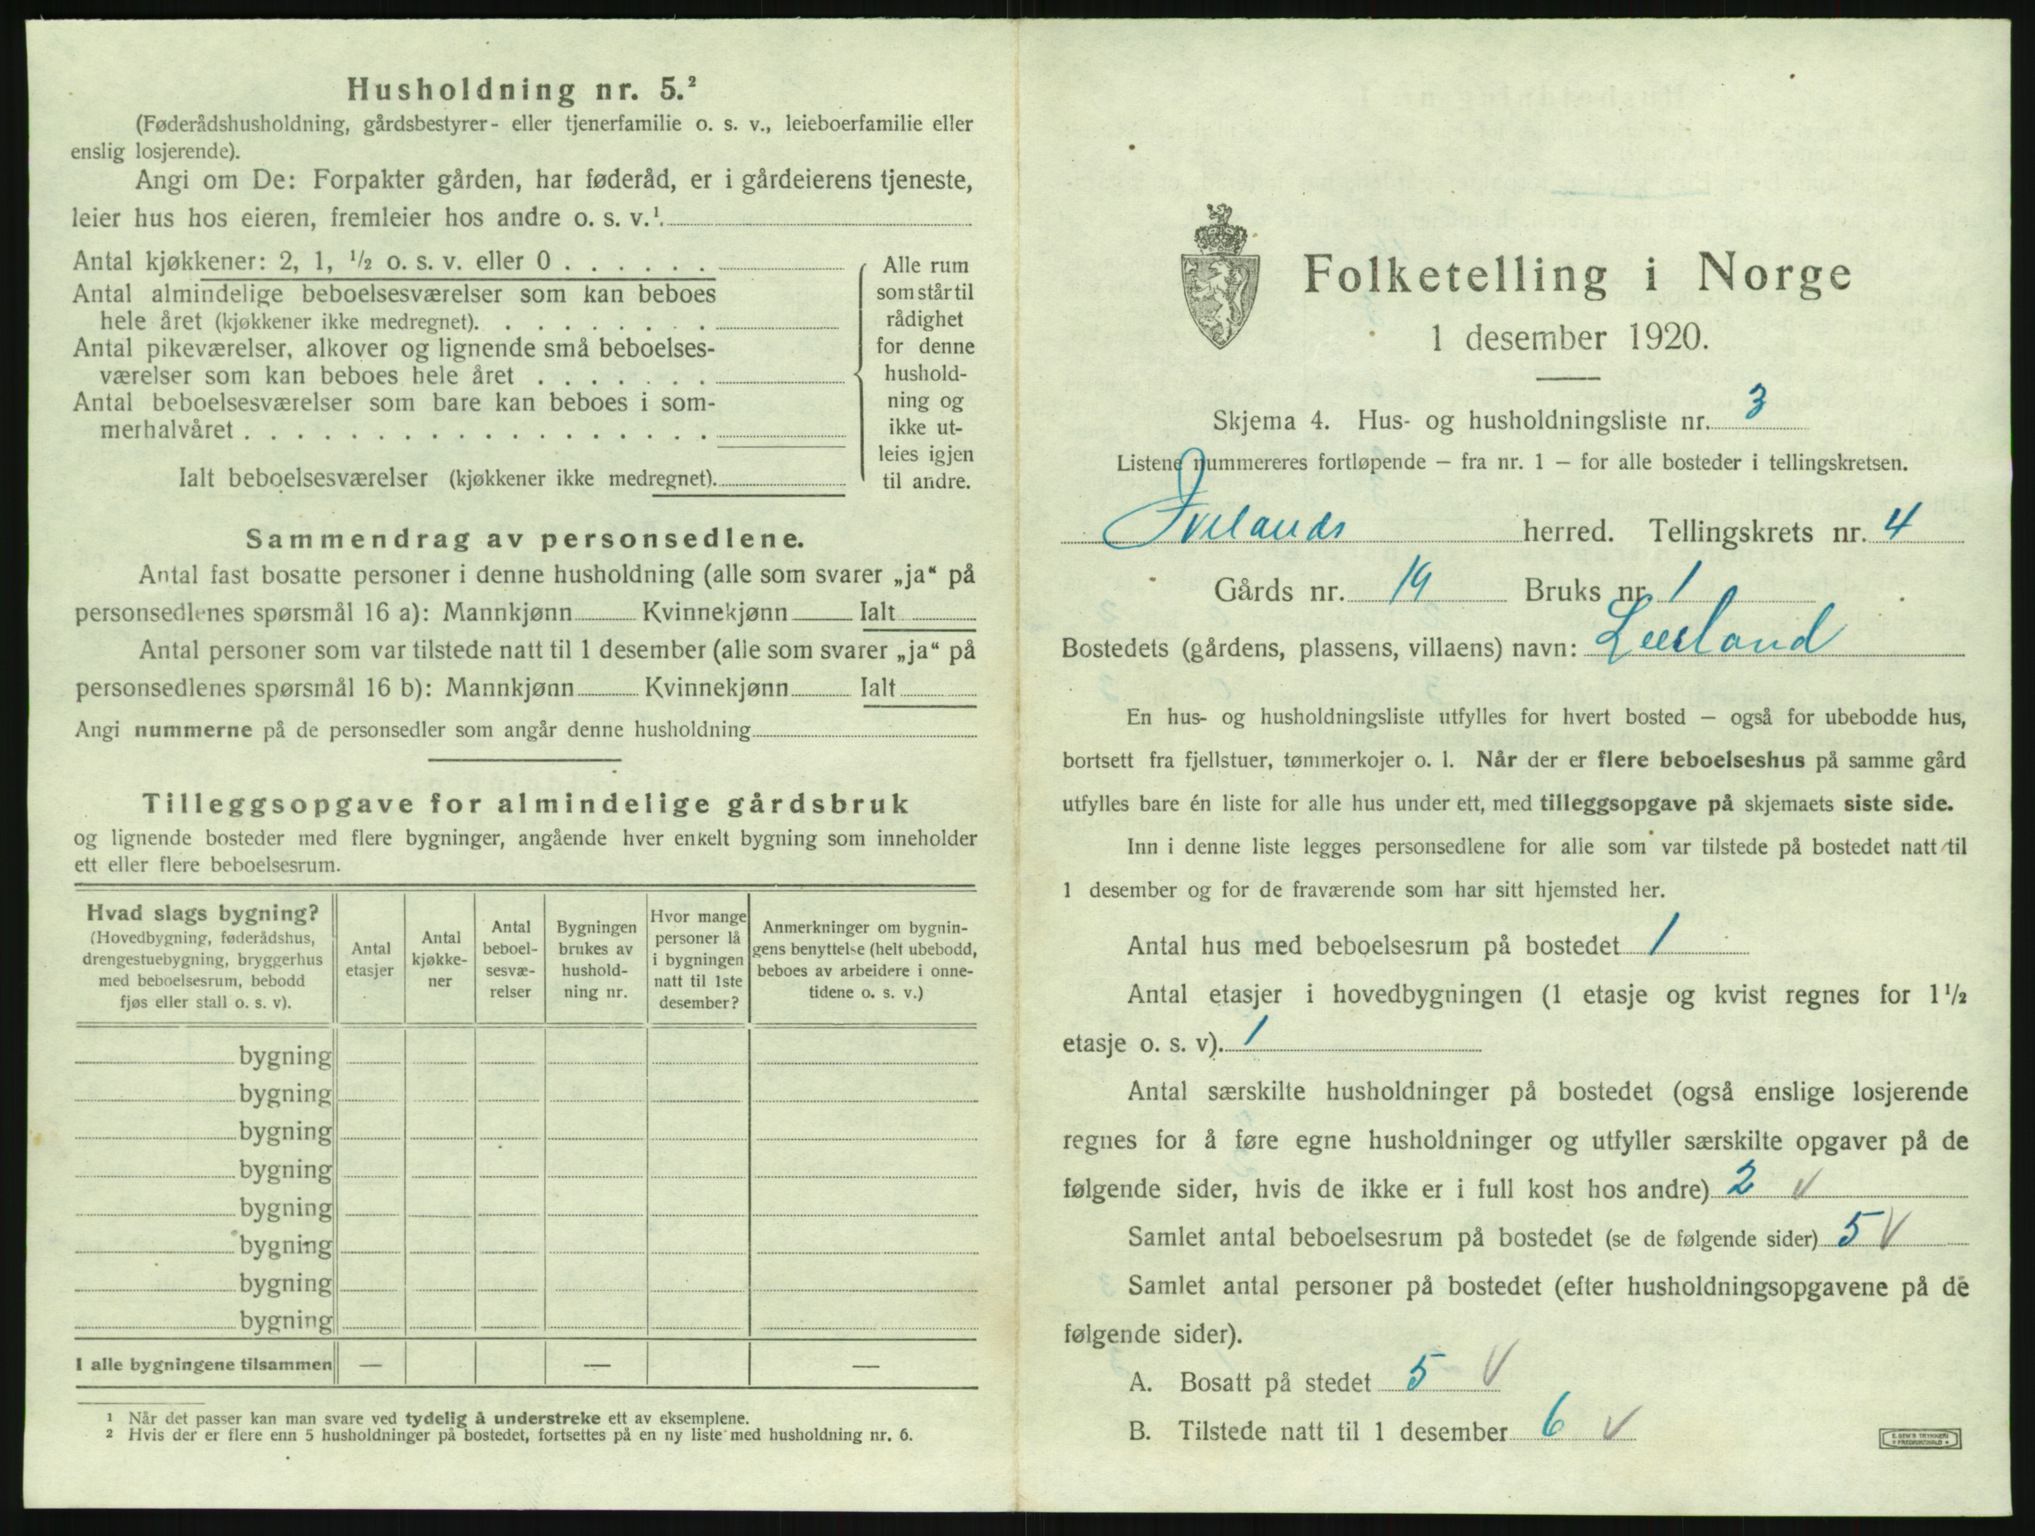 Husholdning nr. 5.²
(Føderådshusholdning, gårdsbestyrer- eller tjenerfamilie o. s. v., leieboerfamilie eller
enslig losjerende).
Angi om De: Forpakter gården, har føderåd, er i gårdeierens tjeneste,
leier hus hos eieren, fremleier hos andre o. s. v.¹.
Antal kjøkkener: 2, 1, ½ o. s. v. eller 0 . . . . . .
Antal almindelige beboelsesværelser som kan beboes
hele året (kjøkkener ikke medregnet). . . . . . . . .
Antal pikeværelser, alkover og lignende små beboelses-
værelser som kan beboes hele året . . . . . . .
Antal beboelsesværelser som bare kan beboes i som-
merhalvåret . . . . . . . . . . . . . . . . . .
Ialt beboelsesværelser (kjøkkener ikke medregnet).
Alle rum
som står til
rådighet
for denne
hushold-
ning og
ikke ut-
leies igjen
til andre.
Sammendrag av personsedlene.
Antal fast bosatte personer i denne husholdning (alle som svarer „ja“ på
personsedlenes spørsmål 16 a): Mannkjønn Kvinnekjønn Ialt
Antal personer som var tilstede natt til 1 desember (alle som svarer „ja“ på
personsedlenes spørsmål 16 b): Mannkjønn Kvinnekjønn Ialt
Angi nummerne på de personsedler som angår denne husholdning
Tilleggsopgave for almindelige gårdsbruk
og lignende bosteder med flere bygninger, angående hver enkelt bygning som inneholder
ett eller flere beboelsesrum.
Hvad slags bygning?
(Hovedbygning, føderådshus,
drengestuebygning, bryggerhus
med beboelsesrum, bebodd
fjøs eller stall o. s. v).
Antal
etasjer
Antal
kjøkke-
ner
Antal
beboel-
sesvæ-
relser
Bygningen
brukes av
hushold-
ning nr.
Hvor mange
personer lå
i bygningen
natt til 1ste
desember?
Anmerkninger om bygnin-
gens benyttelse (helt ubebodd,
beboes av arbeidere i onne-
tidene o. s. v.)
bygning
bygning
bygning
bygning
bygning
bygning
bygning
bygning
I alle bygningene tilsammen — — —
1 Når det passer kan man svare ved tydelig å understreke ett av eksemplene.
2 Hvis der er flere enn 5 husholdninger på bostedet, fortsettes på en ny liste med husholdning nr. 6.
Folketelling i Norge
1 desember 1920.
Skjema 4. Hus- og husholdningsliste nr. 3
Listene nummereres fortløpende – fra nr. 1 – for alle bosteder i tellingskretsen.
Ivelands herred. Tellingskrets nr. 4
Gårds nr. 19 Bruks nr. 1
Bostedets (gårdens, plassens, villaens) navn:
En hus- og husholdningsliste utfylles for hvert bosted – også for ubebodde hus,
bortsett fra fjellstuer, tømmerkojer o. l. Når der er flere beboelseshus på samme gård
utfylles bare én liste for alle hus under ett, med tilleggsopgave på skjemaets siste side.
Inn i denne liste legges personsedlene for alle som var tilstede på bostedet natt til
1 desember og for de fraværende som har sitt hjemsted her.
Antal hus med beboelsesrum på bostedet 1
Antal etasjer i hovedbygningen (1 etasje og kvist regnes for 1½
etasje o. s. v). 1
Antal særskilte husholdninger på bostedet (også enslige losjerende
regnes for å føre egne husholdninger og utfyller særskilte opgaver på de
følgende sider, hvis de ikke er i full kost hos andre) 2 V
Samlet antal beboelsesrum på bostedet (se de følgende sider) 5 V
Samlet antal personer på bostedet (efter husholdningsopgavene på de
følgende sider).
A. Bosatt på stedet 5 V
B. Tilstede natt til 1 desember 6 V